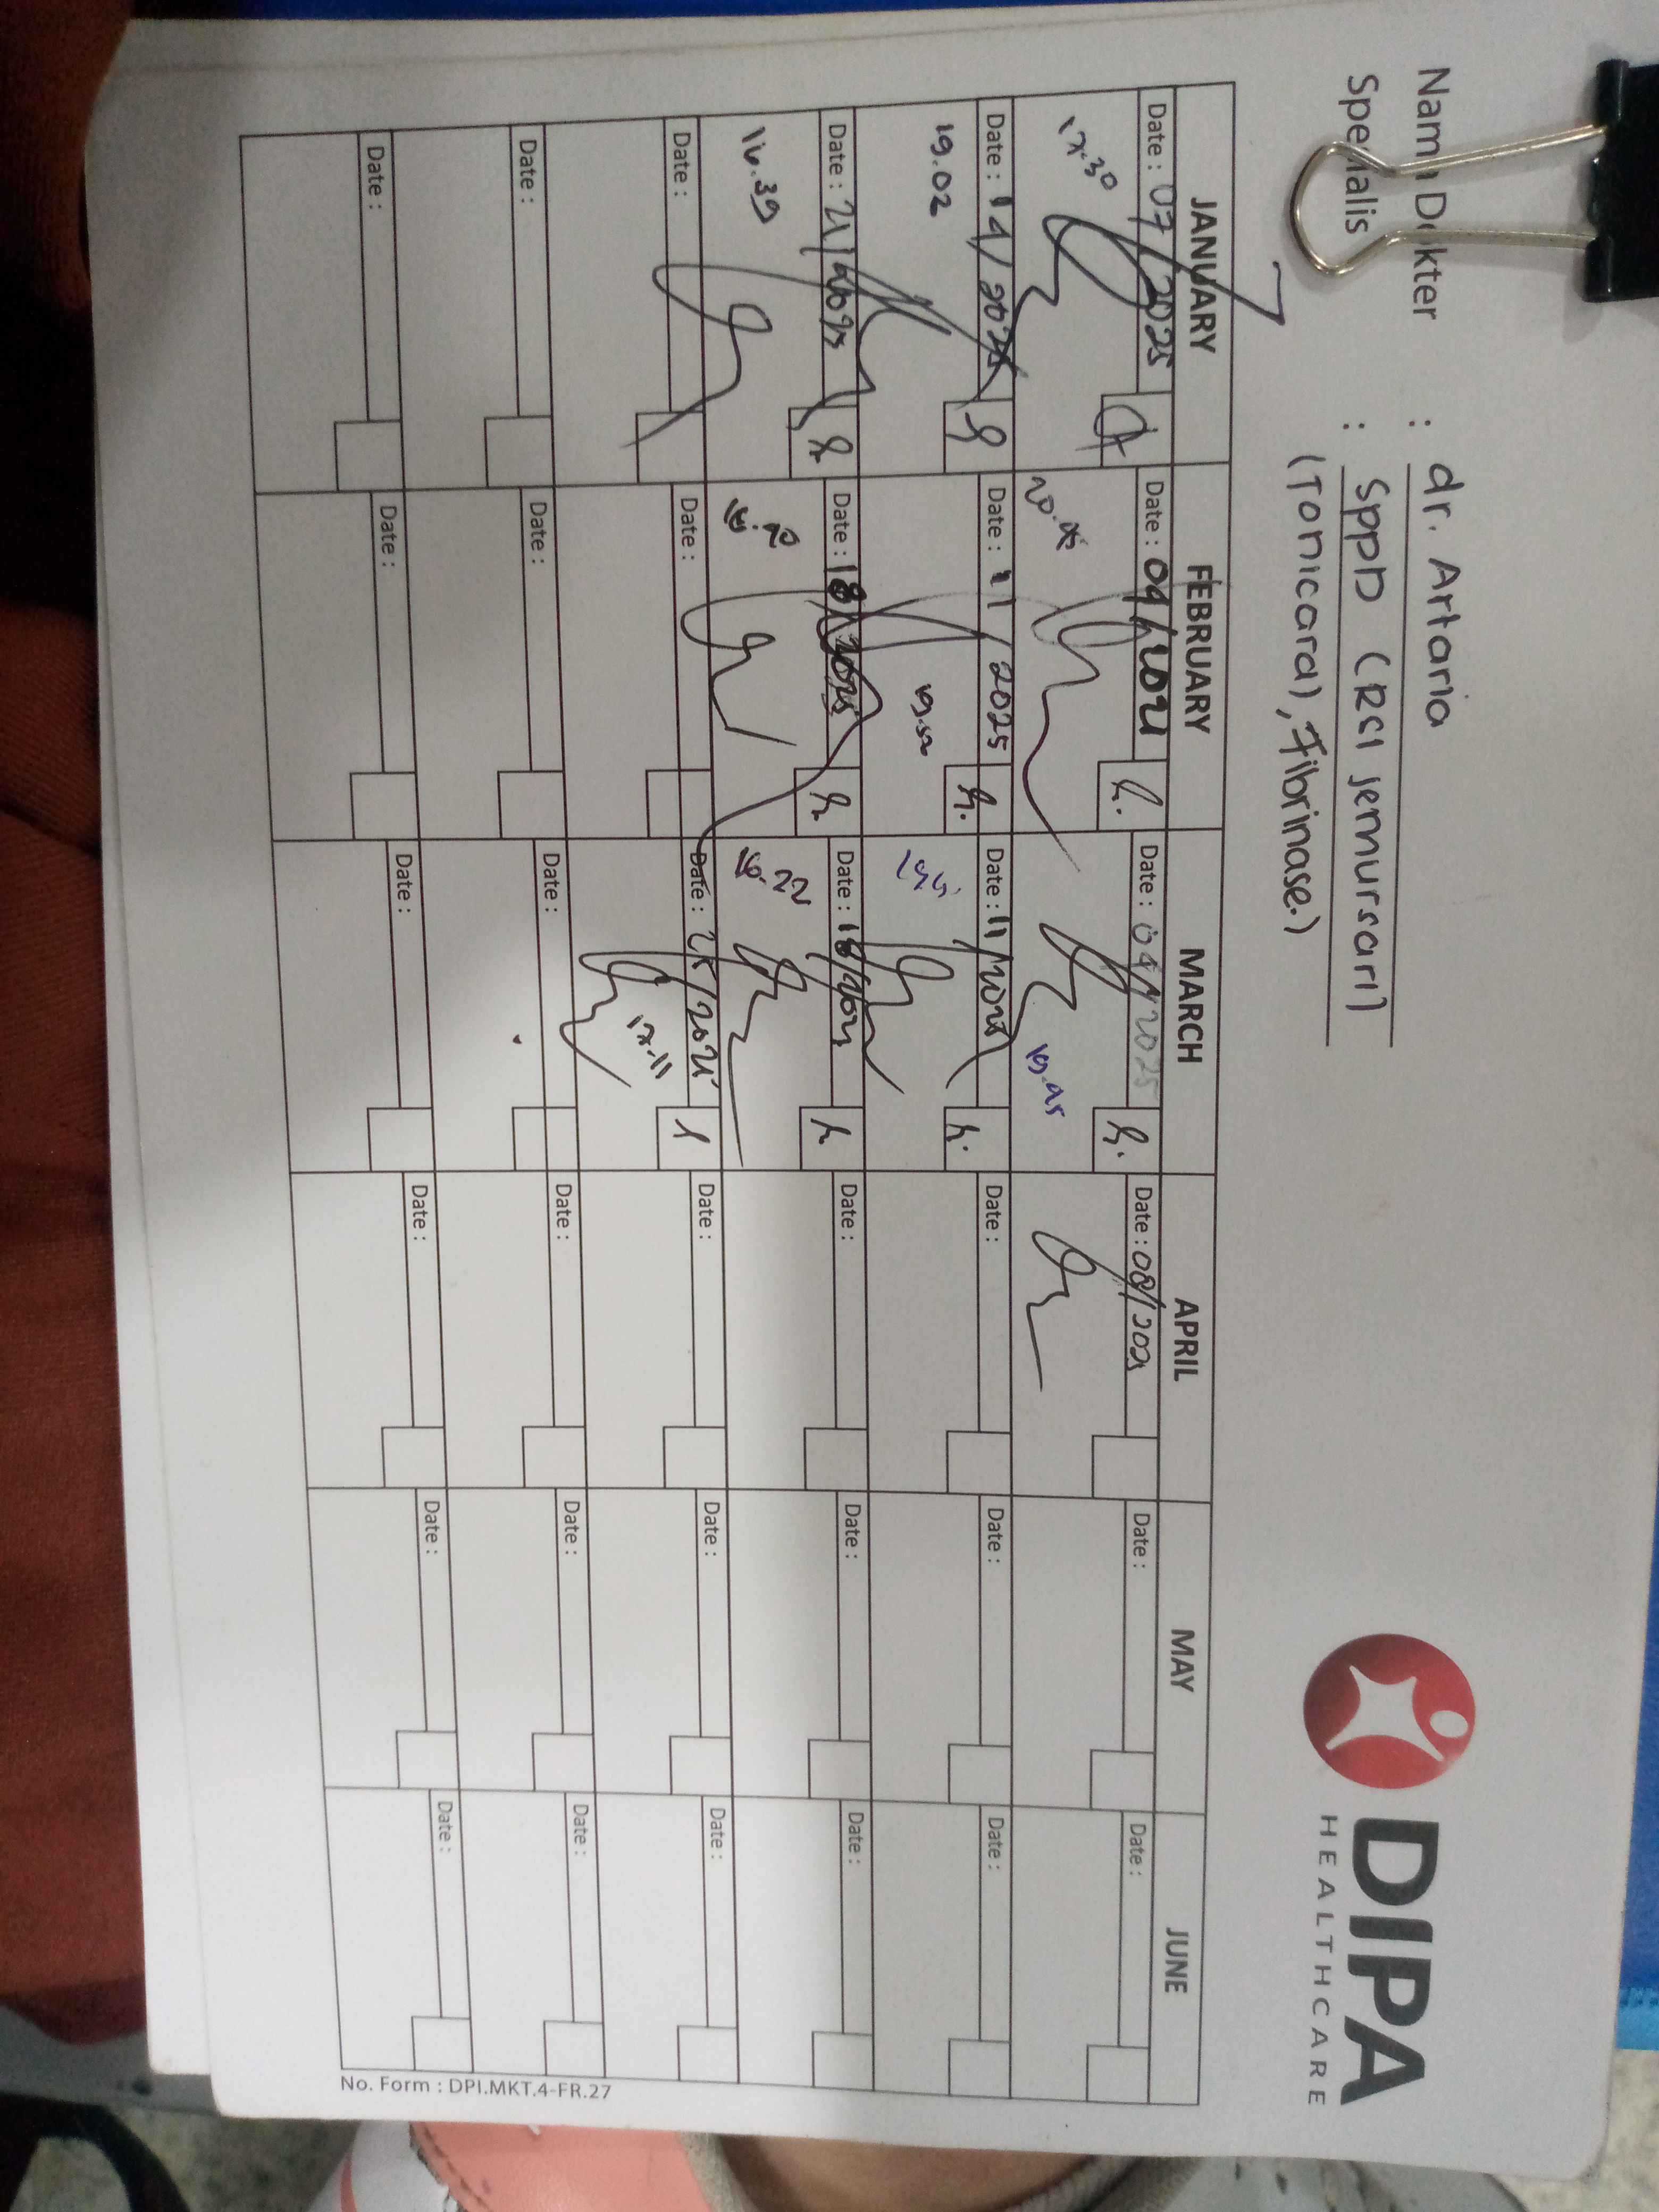 DIPA
HEALTHCARE
Nama Dokter : dr. Artaria
Spesialis : SppD (RSI Jemursari)
(Tonicard), Fibrinase.)
JANUARY FEBRUARY MARCH APRIL MAY JUNE
Date : 07/2025 Date : 04/2025 Date : 04/2025 Date : 08/2025 Date : Date :
17.30 19.45
Date : 14/2025 Date : 11/2025 Date : 11/2025 Date : Date : Date :
19.02
Date : 21/2025 Date : 18/2025 Date : 18/2025 Date : Date : Date :
16.39 16.22
Date : Date : Date : 25/2025 Date : Date : Date :
17.11
Date : Date : Date : Date : Date : Date :
Date : Date : Date : Date : Date : Date :
No. Form : DPI.MKT.4-FR.27